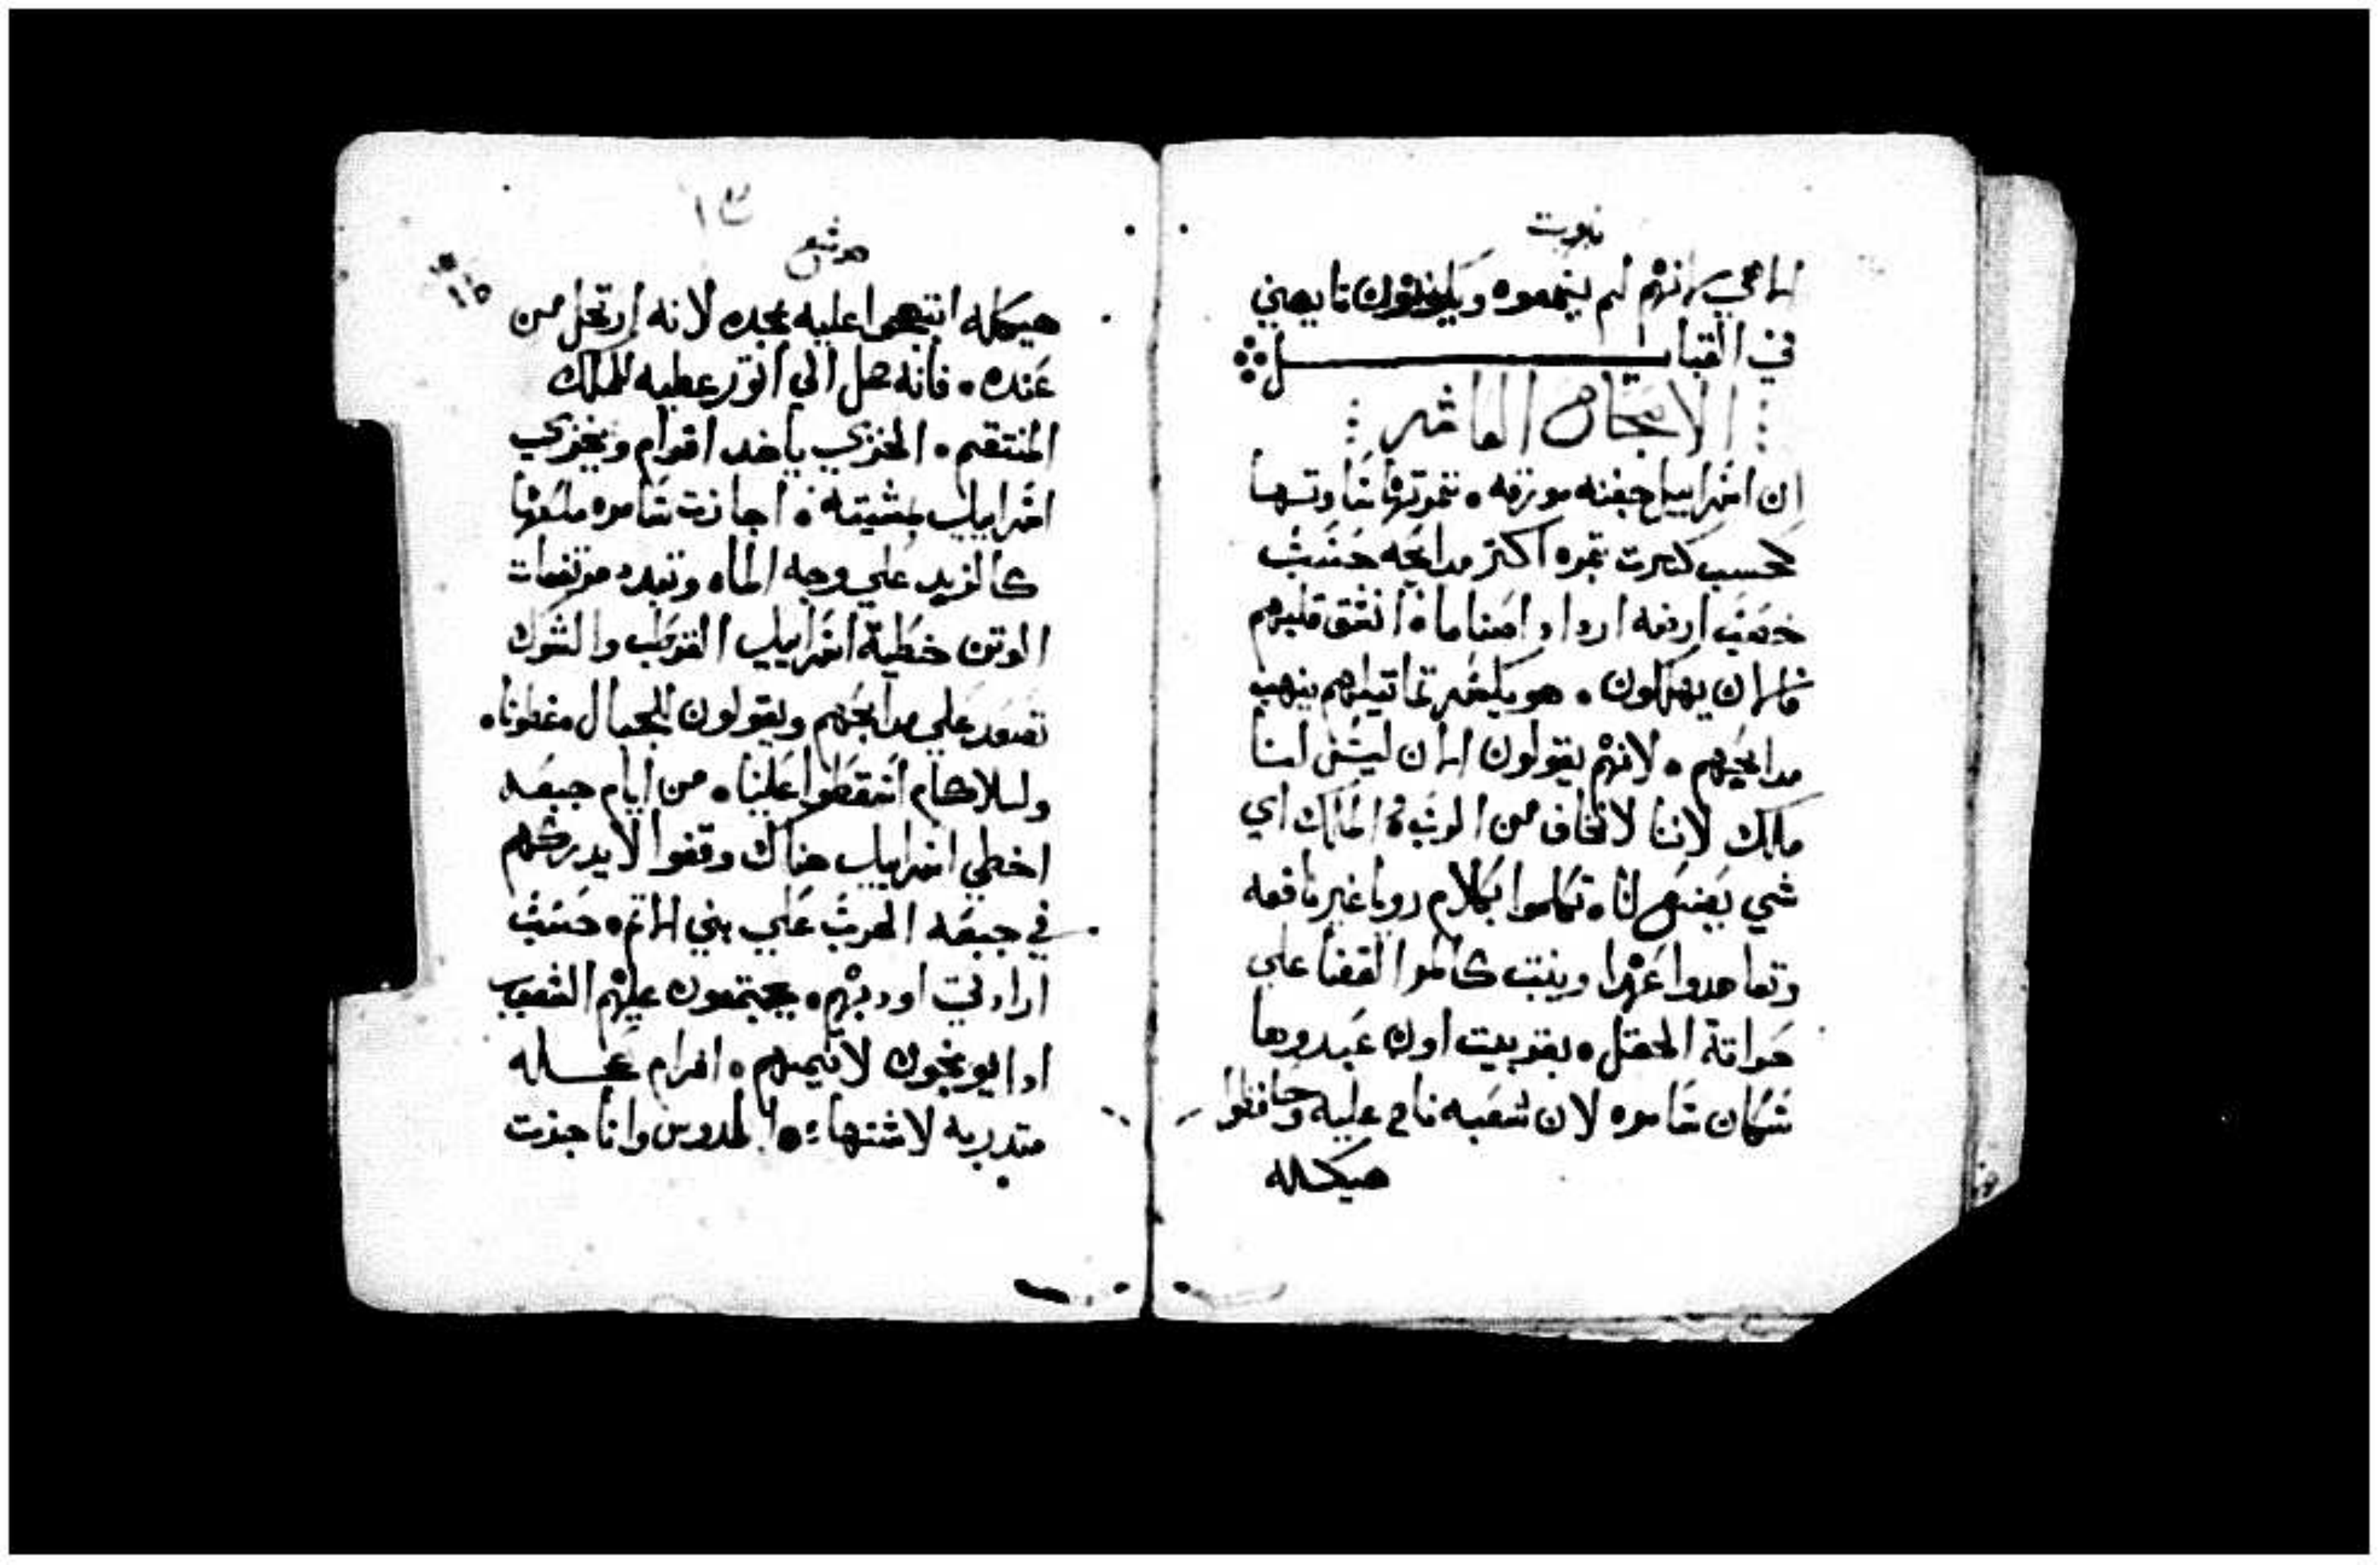 نبوت
الاهي لانهم لم يسمعوه ويكونون تايهين
في القبايل
الاصحاح العاشر
ان اسراييل جفنه مورقه . ثمرتها تساوت بها
كحسب كثرت ثمره اكثر مدابحه حسب
خصب ارضه ازداد اصناما . انشق قلبهم
فالان يهلكون . هو يكسر تماتيلهم ينهب
مدابحهم . لانهم يقولون الان ليس لنا
ملك لاننا لا نخاف من الرب . الملك اي
شي يصنع لنا . تكلموا بكلام رويا غير نافعه
وتعاهدوا عهدا وينبت كالمرا القضا علي
حراثة الحقل . بقر بيت اون عبدوها
سكان سامره لان شعبه ناح عليه وحافظوا
هيكله
هوشع
١٣
١٥
هيكله ابتهجوا عليه بمجده لانه ارتحل من
عنده . فانه حمل الي اتور عطيه للملك
المنتقم . الخزي ياخد افرام ويخزي
اسراييل بمشيته . اجازت سامره ملكها
كالزبد علي وجه الماء وتبدد مرتفعات
الوتن خطية اسراييل القرطب والشوك
تصعد علي مدابحهم ويقولون للجبال غطونا .
وللاكام اسقطوا علينا . من ايام جبعه
اخطي اسراييل هناك وقفوا لا يدركهم
في جبعه الحرب علي بني الاتم . حسب
ارادتي اودبهم . يجتمعون عليهم الشعوب
ادا يوبخون لاتميهم . افرام عجله
متدربه لاشتهاء الدروس وانا جزت